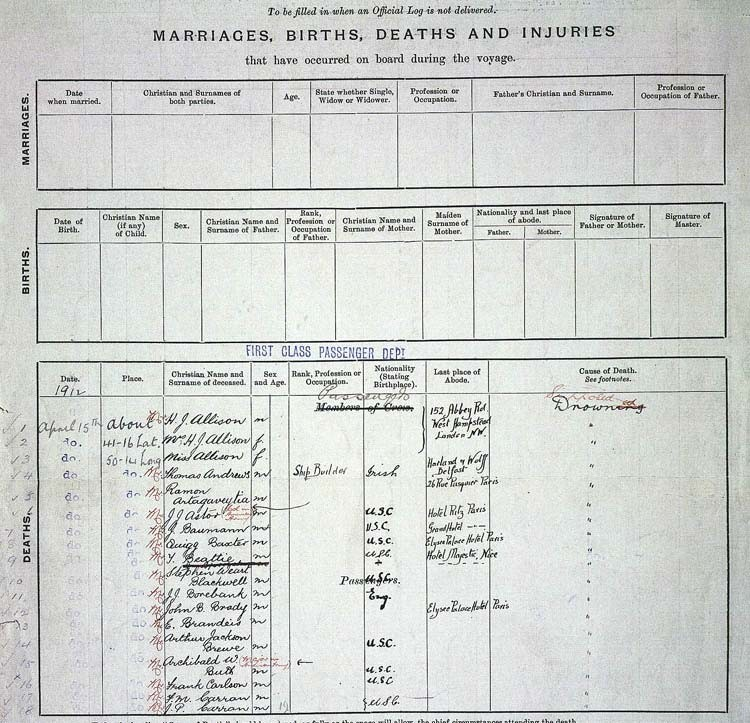 To be filled in when an Official Log is not delivered.
MARRIAGES, BIRTHS, DEATHS AND INJURIES
that have occurred on board during the voyage.
MARRIAGES.
Date when married.
Christian and Surnames of both parties.
Age.
State whether Single, Widow or Widower.
Profession or Occupation.
Father's Christian and Surname.
Profession or Occupation of Father.
BIRTHS.
Date of Birth.
Christian Name (if any) of Child.
Sex.
Christian Name and Surname of Father.
Rank, Profession or Occupation of Father.
Christian Name and Surname of Mother.
Maiden Surname of Mother.
Nationality and last place of abode.
Father.
Mother.
Signature of Father or Mother.
Signature of Master.
FIRST CLASS PASSENGER DEPT
DEATHS.
Date.
1912
Place.
Christian Name and Surname of deceased.
Sex and Age.
Rank, Profession or Occupation.
Nationality (Stating Birthplace).
Last place of Abode.
Cause of Death.
See footnotes.
Passengers
Members of Crew.
Supposed
Drowning
1 April 15th about Mr H. J. Allison m 152, Abbey Rd.
West Hampstead
London N.W.
2 do. 41-16 Lat Mrs H J Allison f. "
3 do. 50-14 Long Miss Allison f. "
4 do. do. Mr Thomas Andrews m Ship Builder Irish Harland & Wolff Belfast "
5 do. do. Mr Ramon Artagaveytia m 26 Rue Pasquier Paris "
do. do. Mr J J Astor m U.S.C Hotel Ritz Paris "
7 do. do. Mr J. Baumann m U.S.C. Grand Hotel -"- "
8 do. do. Mr Quigg Baxter m U.S.C. Elysee Palace Hotel Paris "
9 do. do. Mr T. Beattie. m U.S.C. Hotel Majestic, Nice "
10 do. Mr Stephen Weart Blackwell m Passengers. U.S.C. "
11 do. Mr J.J. Borebank m Eng. "
12 do. Mr John B. Brady m Elysee Palace Hotel Paris "
13 do. Mr E. Brandeis m "
14 do. Mr Arthur Jackson Brewe m U.S.C. "
15 do. Mr Archibald W. Butt m U.S.C. "
16 do. Mr Frank Carlson m U.S.C "
do. Mr F. M. Carran m U.S.C. "
18 do. Mr J. P. Carran m "